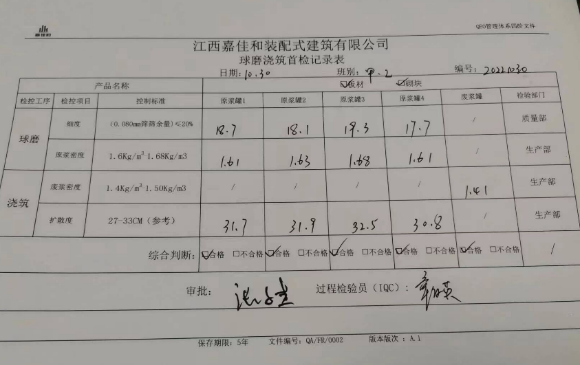 QEO管理体系四阶文件
江西嘉佳和装配式建筑有限公司
球磨浇筑首检记录表
日期:10.30 班别:甲.2 编号:20221030
产品名称 ☑板材 ☑砌块
检控工序 检控项目 控制标准 原浆罐1 原浆罐2 原浆罐3 原浆罐4 废浆罐 检验部门
球磨 细度 (0.080mm筛筛余量)≤20% 18.7 18.1 19.3 17.7 / 质量部
原浆密度 1.6Kg/m³ 1.68Kg/m3 1.61 1.63 1.68 1.61 / 生产部
浇筑 废浆密度 1.4Kg/m³ 1.50Kg/m3 / / / / 1.41 生产部
扩散度 27-33CM (参考) 31.7 31.9 32.5 30.8 / 生产部
综合判断: ☑合格 □不合格 ☑合格 □不合格 ☑合格 □不合格 ☑合格 □不合格 ☑合格 □不合格 /
审批: 过程检验员 (IQC):
保存期限: 5年 文件编号: QA/FR/0002 版本版次: A.1